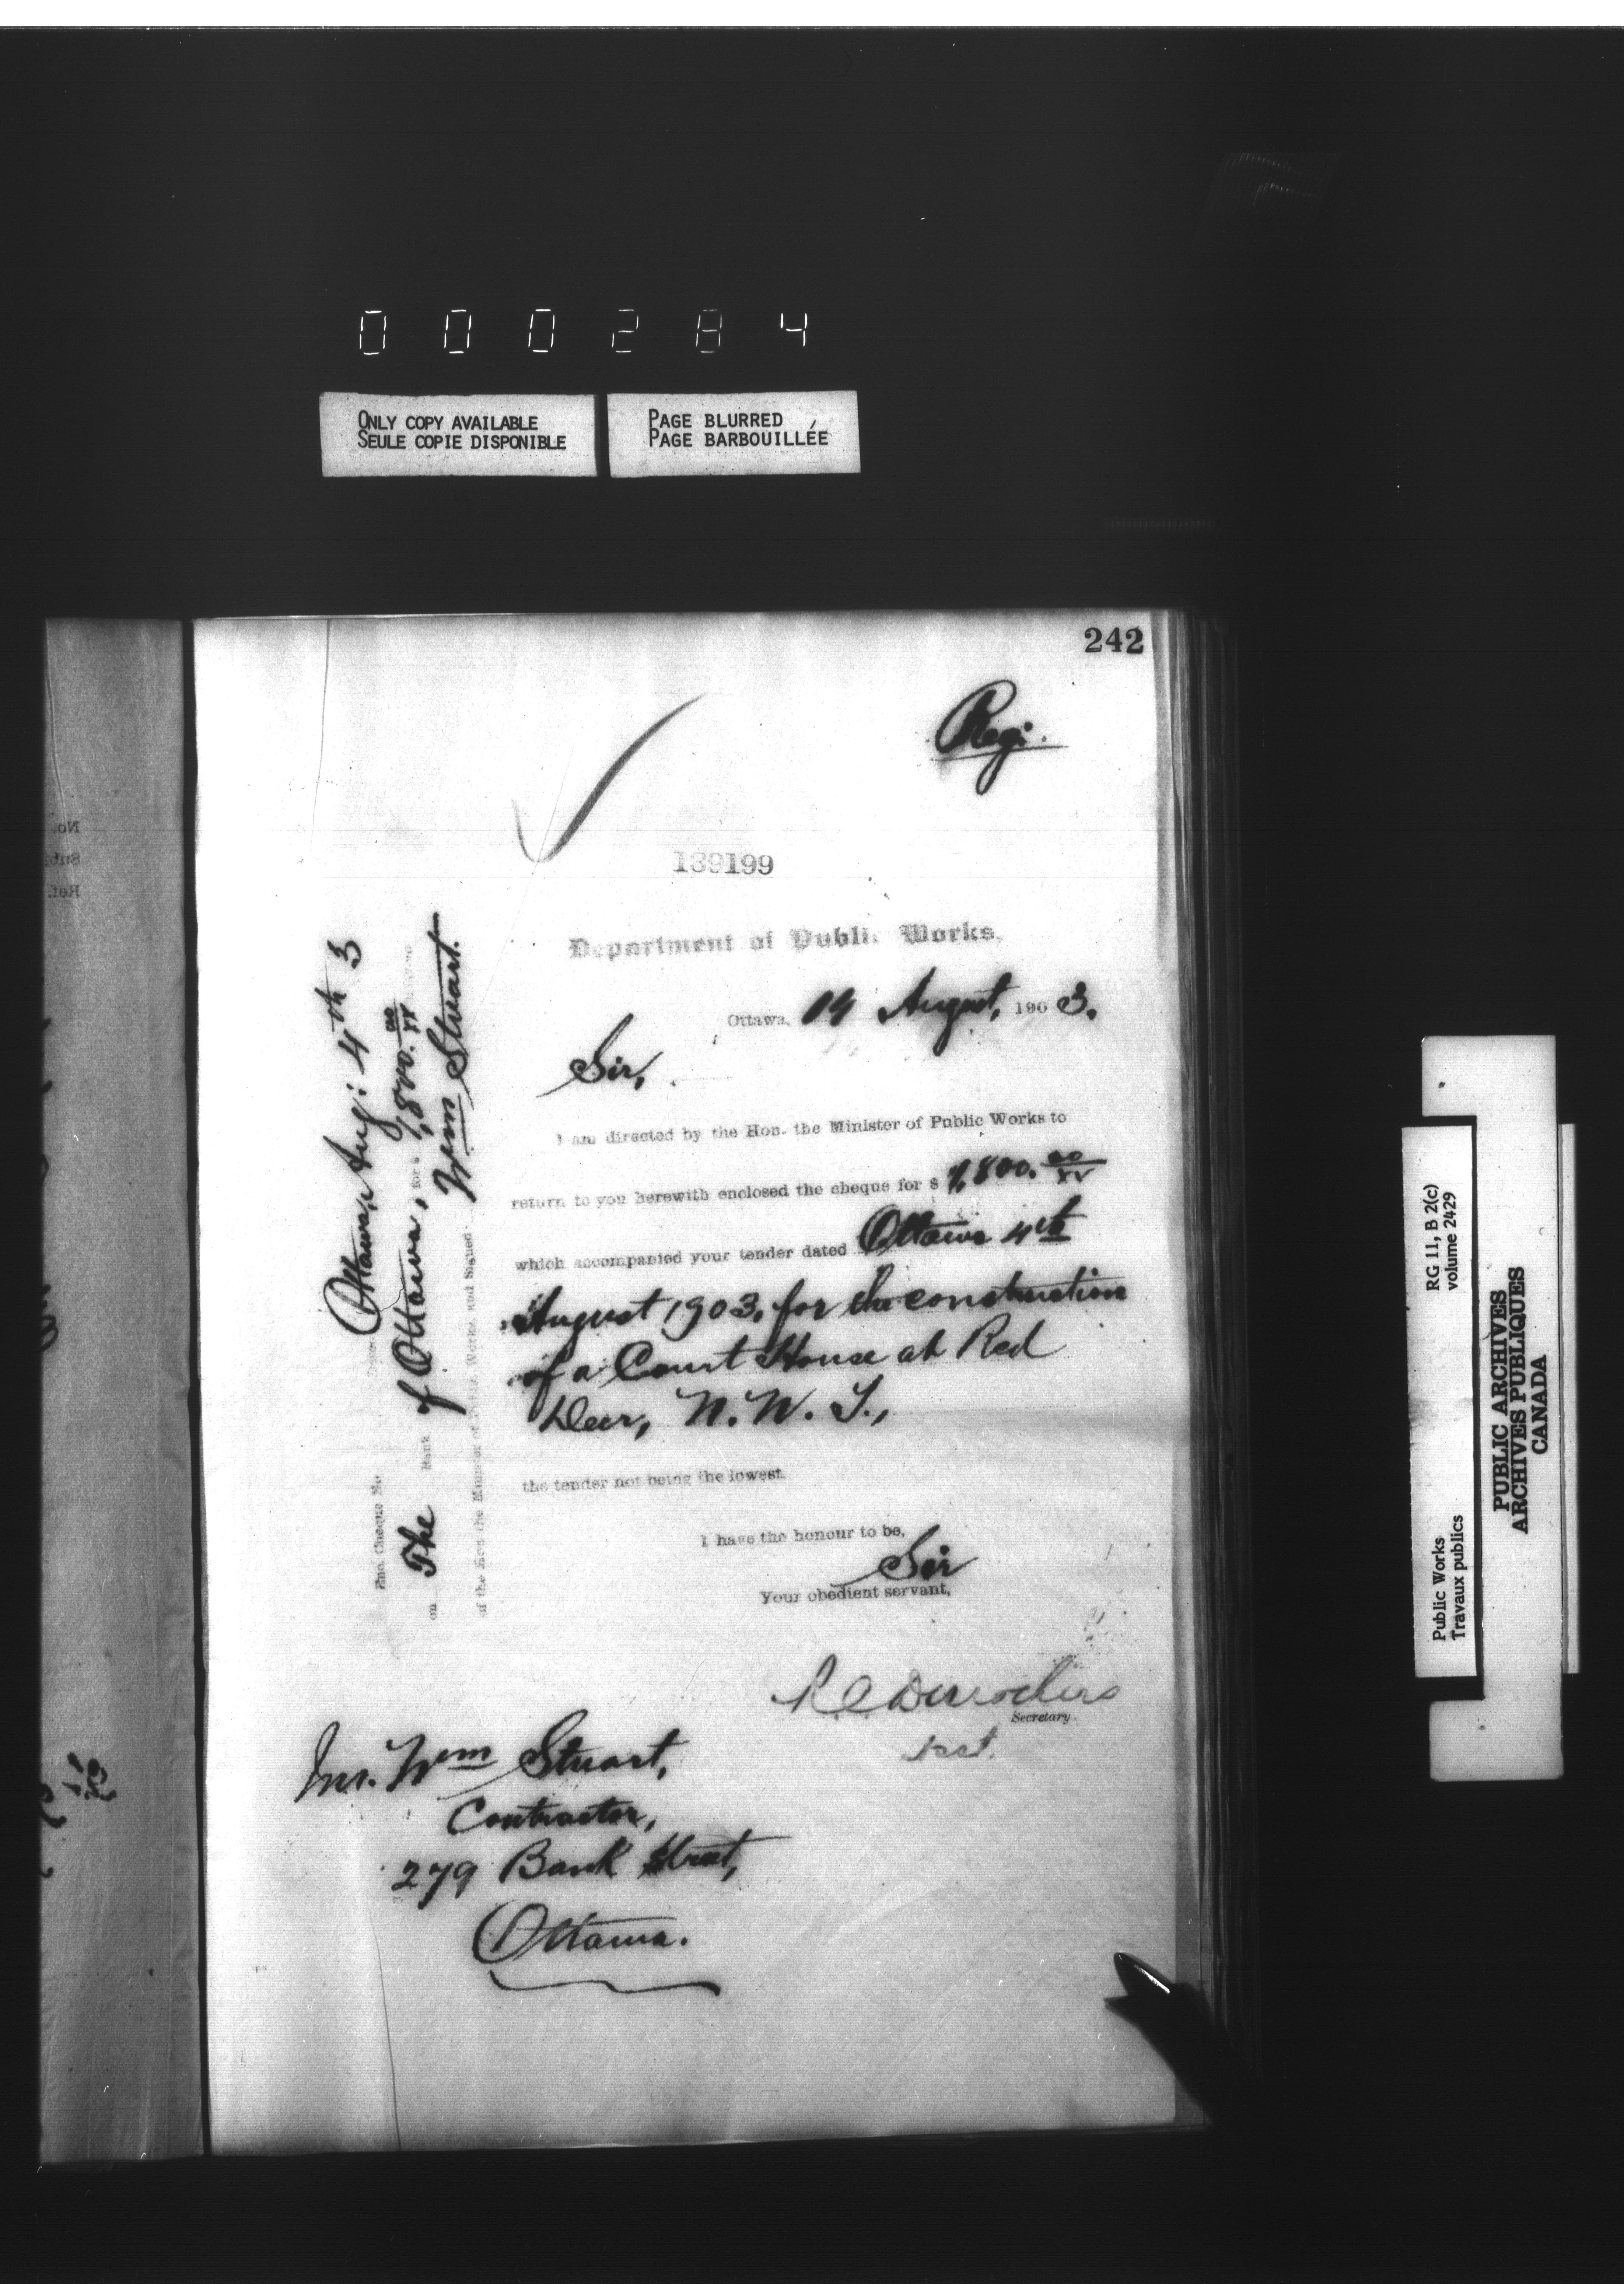 000284
ONLY COPY AVAILABLE
SEULE COPIE DISPONIBLE
PAGE BLURRED
PAGE BARBOUILLÉE
242
Regi.
139199
Department of Public Works,
Ottawa, 19 August, 1903.
Sir,
I am directed by the Hon. the Minister of Public Works to
return to you herewith enclosed the cheque for $ 1,800. 00/xx
which accompanied your tender dated Ottawa 4th
August 1903, for the construction
of a Court House at Red
Deer, N. W. T.,
the tender not being the lowest.
I have the honour to be,
Sir
Your obedient servant,
R C Desrochers
Secretary.
Mr. Wm Stuart,
Contractor,
279 Bank Street,
Ottawa.
Enc. Cheque No Ottawa, Aug: 4th 3
on The Bank of Ottawa, for $ 1,800. 00/xx
of the Hon. the Minister of Public Works and Signed Wm Stuart.
No.
Sub.
Ref.
RG 11, B 2(c)
volume 2429
Public Works
Travaux publics
PUBLIC ARCHIVES
ARCHIVES PUBLIQUES
CANADA